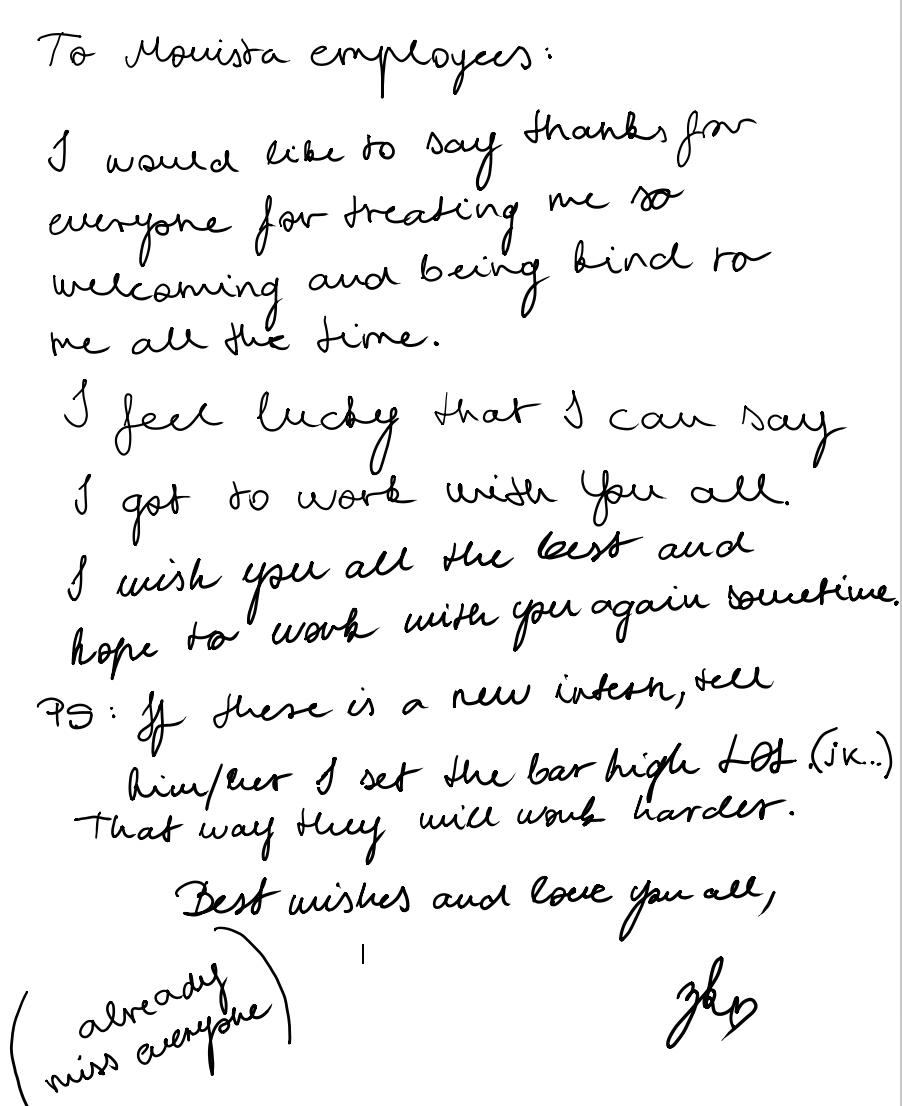 To Mouista employees:
I would like to say thanks for
everyone for treating me so
welcoming and being kind to
me all the time.
I feel lucky that I can say
I got to work with you all.
I wish you all the best and
hope to work with you again sometime.
PS: If there is a new intern, tell
him/her I set the bar high LOL.(jk...)
That way they will work harder.
Best wishes and love you all,
(already
miss everyone)